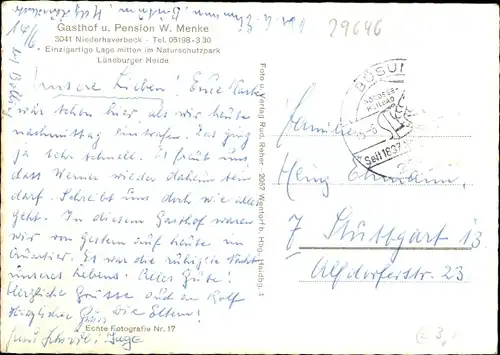 29646
Gasthof u. Pension W. Menke
3041 Niederhaverbeck - Tel. 05198-330
Einzigartige Lage mitten im Naturschutzpark
Lüneburger Heide
Unsere Lieben! Eure Karte
war schon hier, als wir heute
nachmittag eintrafen. Das ging
ja sehr schnell. Es freut uns,
dass Werner wieder daheim sein
darf. Schreibt uns doch wie alles
geht. In diesem Gasthof waren
wir von gestern auf heute im
Quartier. Es war die ruhigste Nacht
unseres Lebens. Alles Gute!
Herzliche Grüsse auch an Rolf
Herzliche Grüsse Die Eltern!
Inge
Echte Fotografie Nr. 17
Foto u. Verlag Rud. Reher 2057 Wentorf b. Hbg., Haidbg. 1
BÜSUM
NORDSEE-
HEILBAD
Seit 1837
Familie
Heinz Ehmann,
7 Stuttgart 13
Alfdorferstr. 23